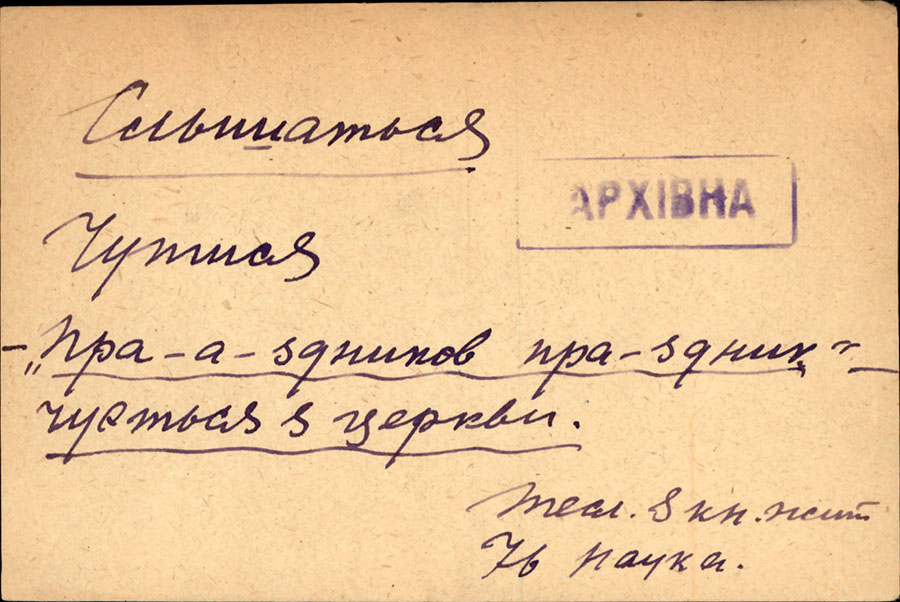 Слышаться
АРХІВНА
Чутися
– „Пра-а-здников пра-здник” –
чується з церкви.
Тесл. З кн. жит
76 Наука.